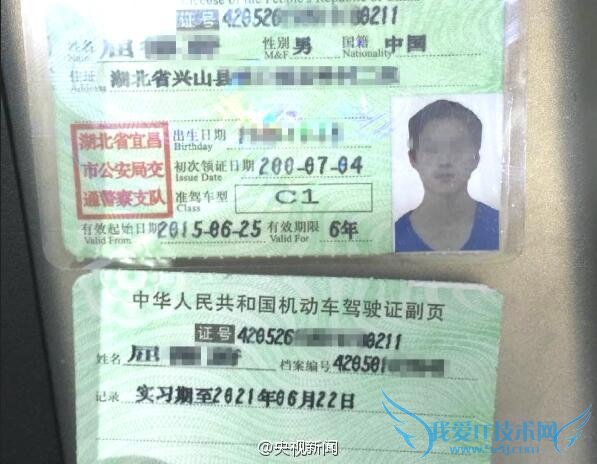 License of the People's Republic of China
证号 420526 0211
姓名 屈
Name
性别 男 国籍 中国
M&F Nationality
住址 湖北省兴山县
Address
湖北省宜昌
市公安局交
通警察支队
出生日期
Birthday
初次领证日期 200-07-04
Issue Date
准驾车型 C1
Class
有效起始日期 2015-06-25 有效期限 6年
Valid From Valid For
中华人民共和国机动车驾驶证副页
证号 420526 0211
姓名 屈 档案编号 420501
记录 实习期至2021年06月22日
@央视新闻
我爱IT技术网